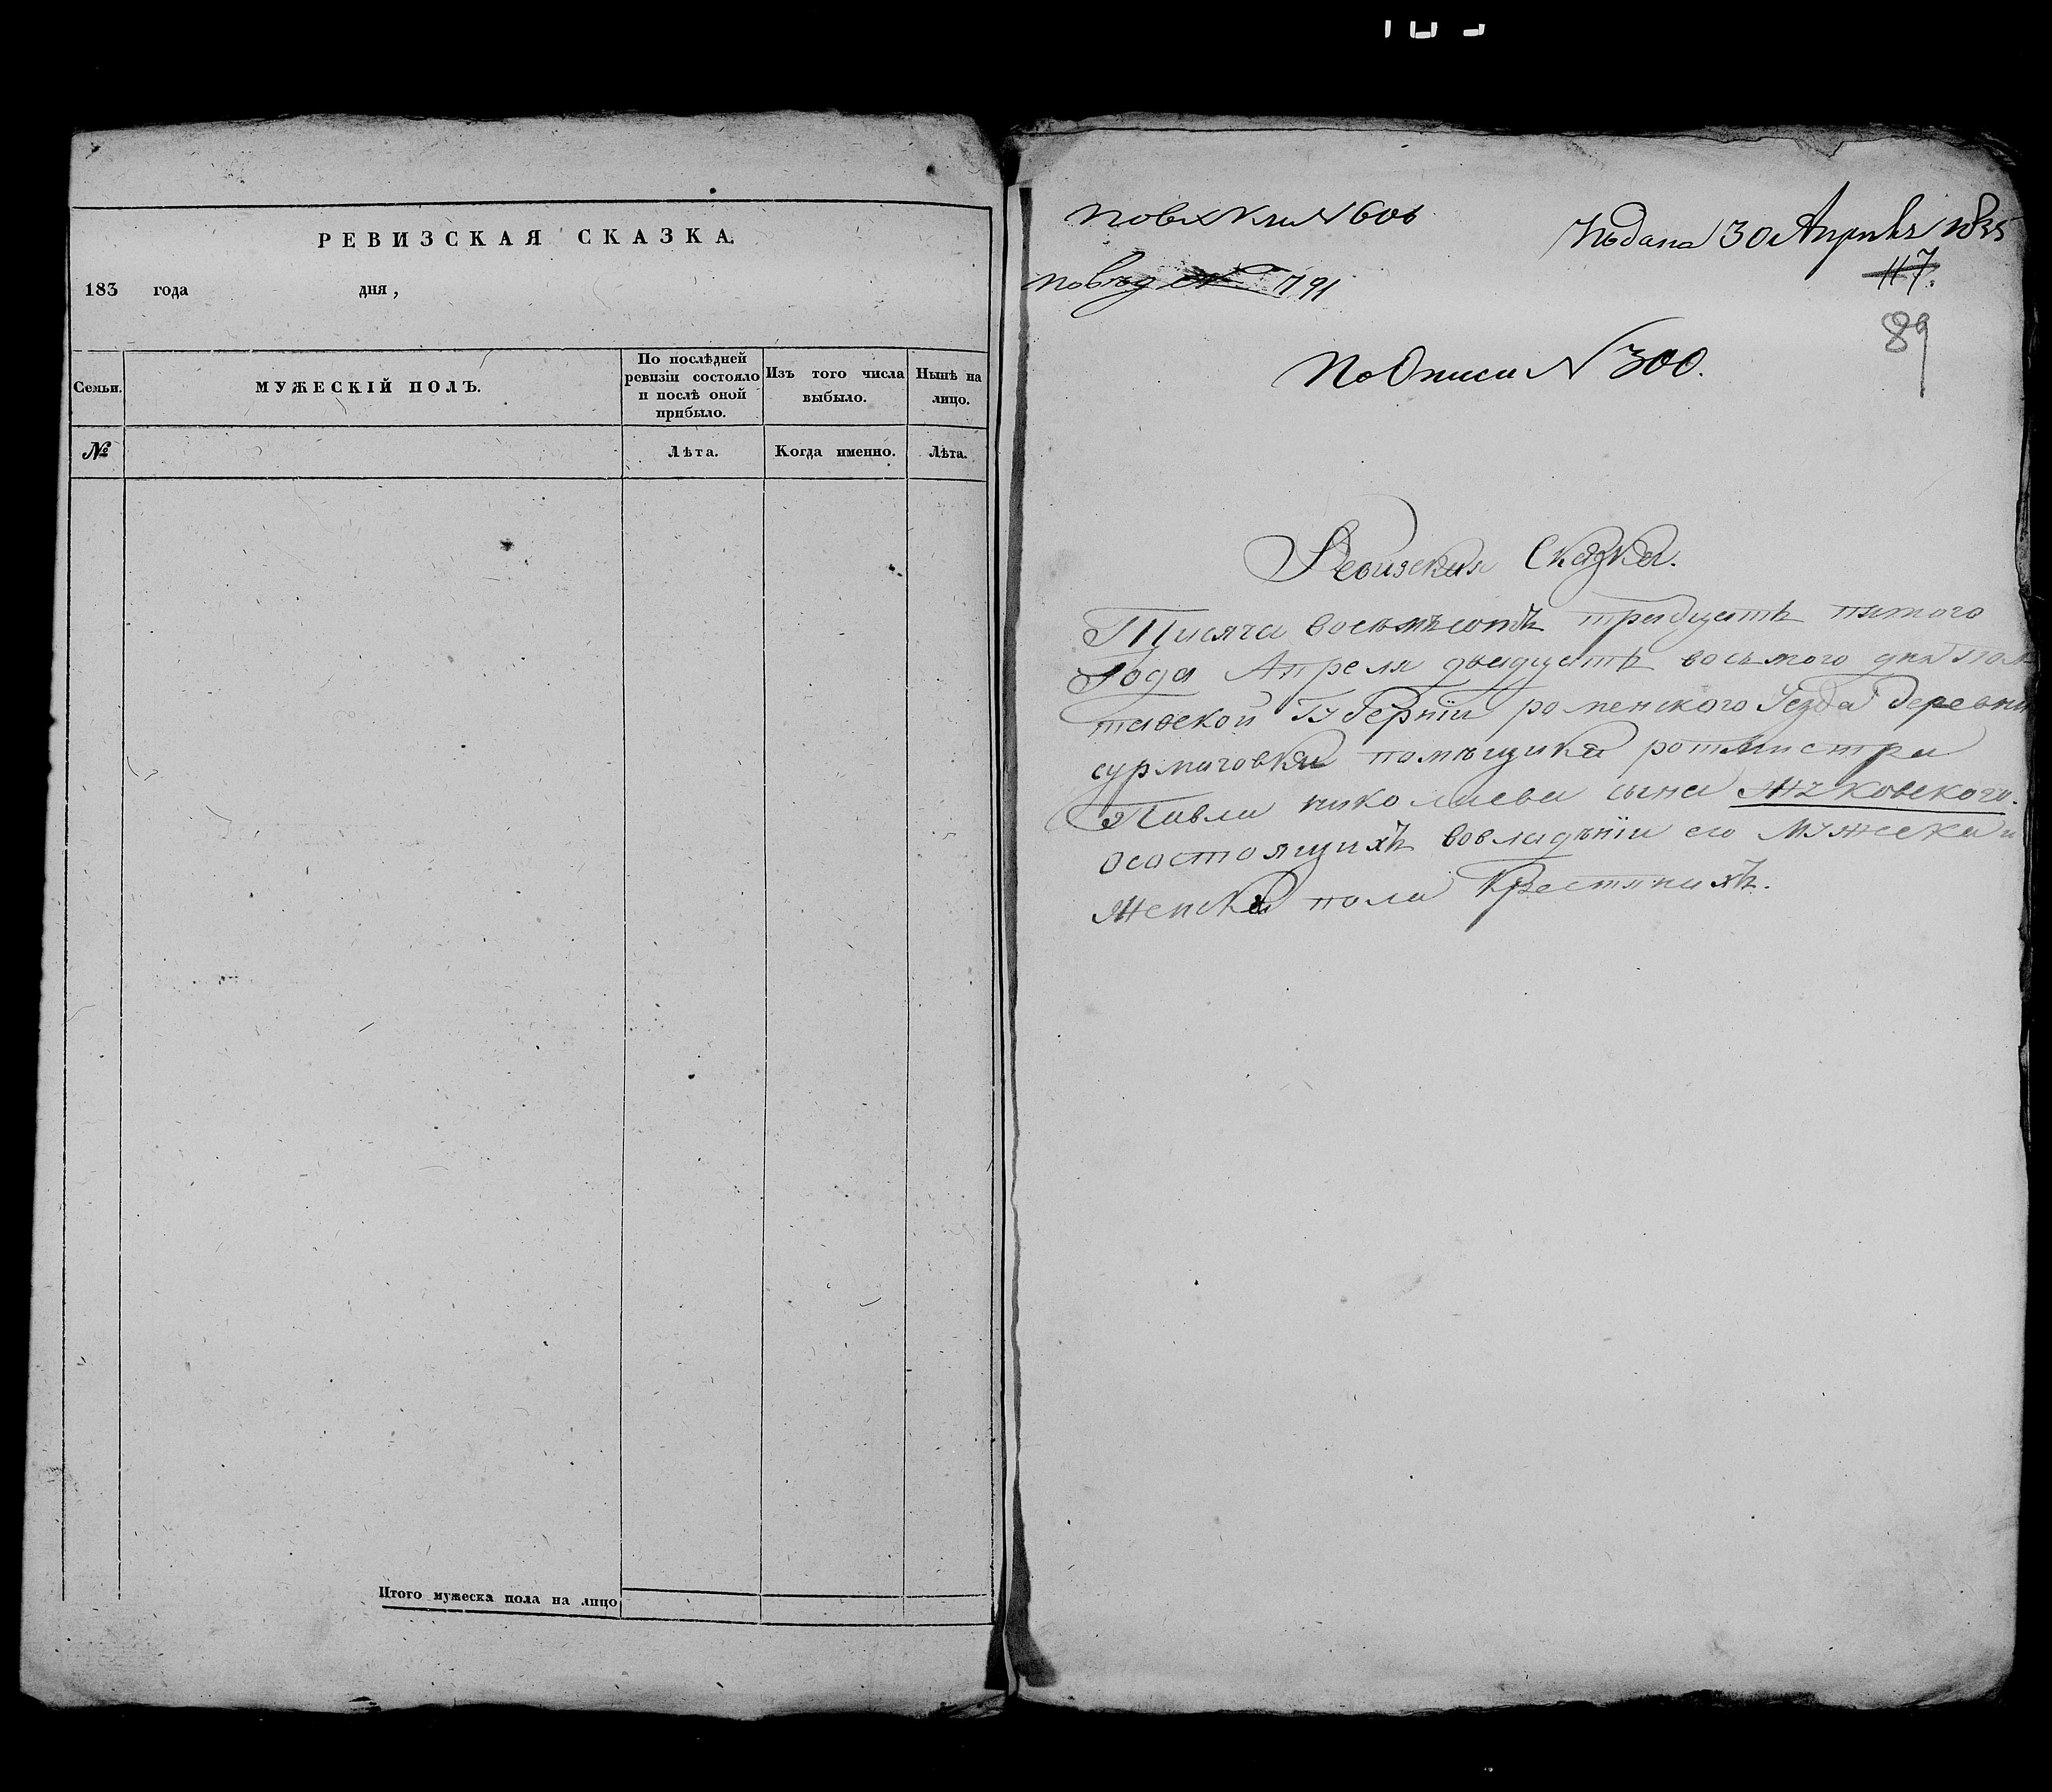 РЕВИЗСКАЯ СКАЗКА.
183 года дня,
Семьи.
МУЖЕСКІЙ ПОЛЪ.
По послѣдней
ревизіи состояло
и послѣ оной
прибыло.
Изъ того числа
выбыло.
Нынѣ на
лицо.
№
Лѣта.
Когда именно.
Лѣта.
Итого мужеска пола на лицо
По вх. кни. №
Подана 30 Апрѣля 1835
117.
791
89
По Описи № 300.
Ревизская Сказка.
Тисяча восемьсотъ тридцать пятого
Года Апреля двадцать восьмого дня Пол
тавской Губерніи роменского Уезда деревни
сурмачовки помѣщика ротмистра
Павла николаева сына Жуковского.
осостоящихъ вовладѣніи его мужеска и
Женска пола Крестянихъ.